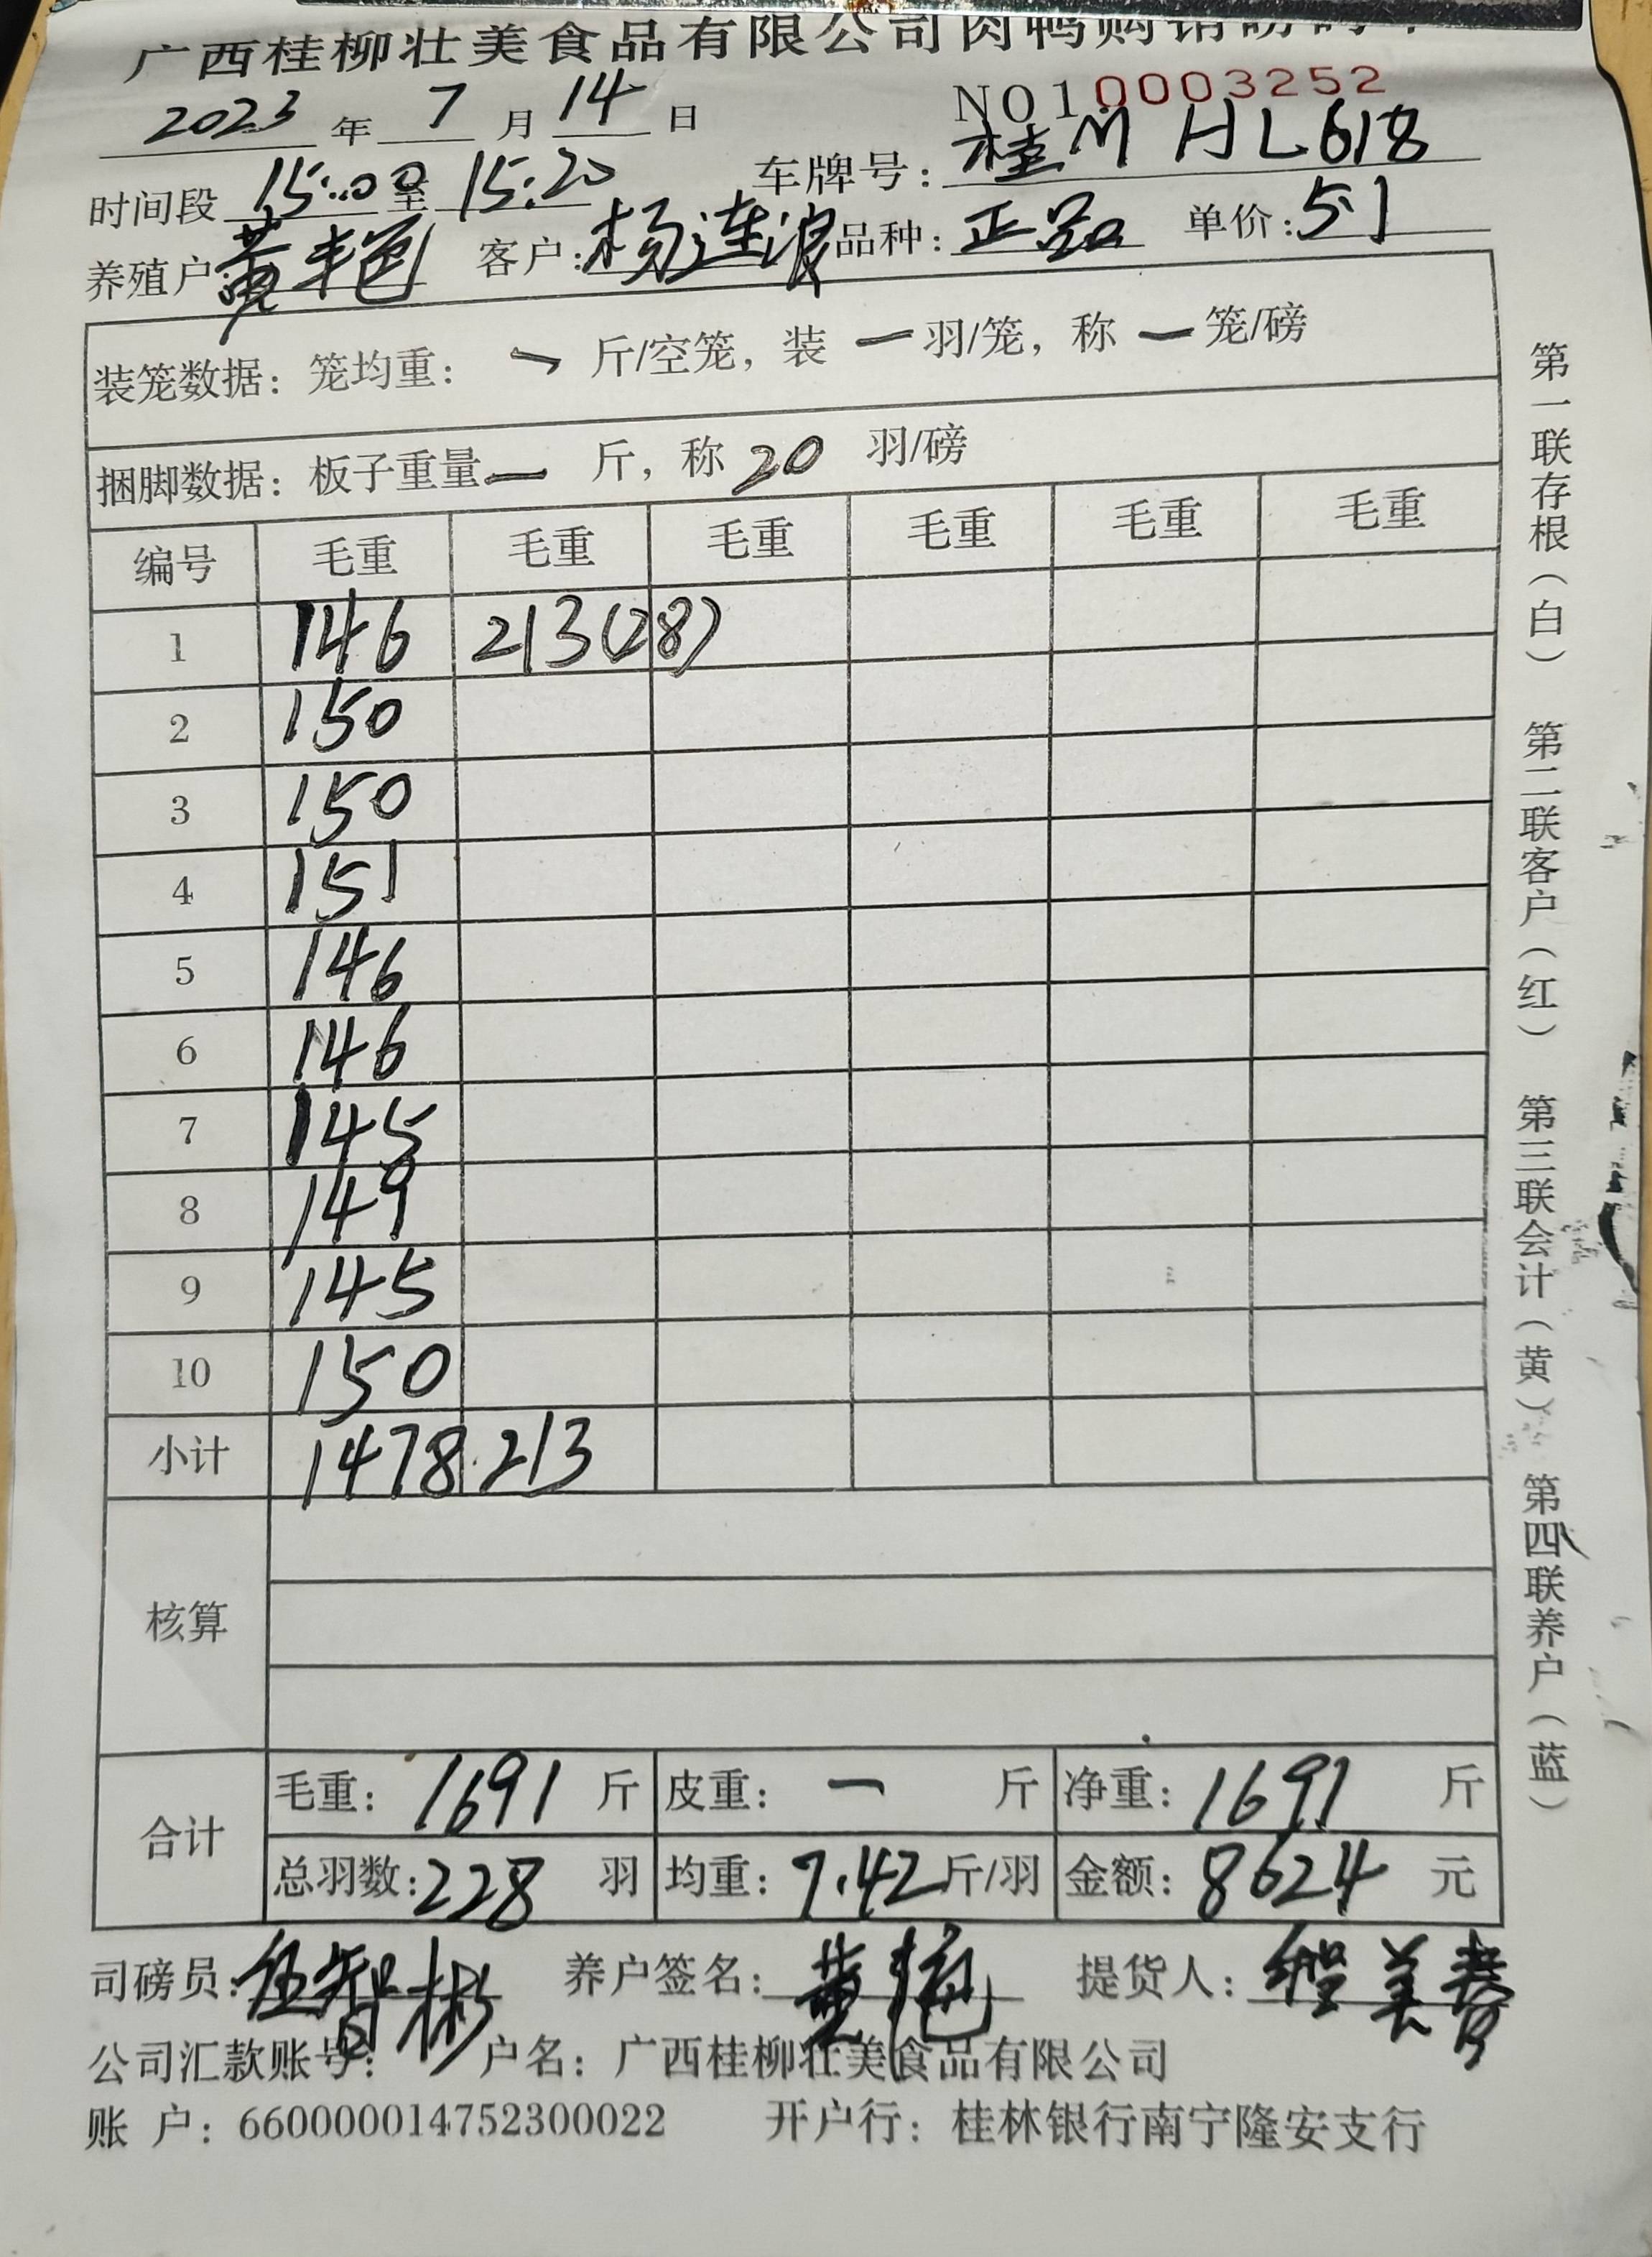 广西桂柳壮美食品有限公司肉鸭购销磅码单
2023 年 7 月 14 日 NO10003252
时间段 15:00 至 15:20 车牌号: 桂M HL618
养殖户: 黄艳 客户: 杨连浪 品种: 正品 单价: 5.1
装笼数据: 笼均重: 一 斤/空笼, 装 一 羽/笼, 称 一 笼/磅
捆脚数据: 板子重量 一 斤, 称 20 羽/磅
编号 毛重 毛重 毛重 毛重 毛重 毛重
1 146 213(28)
2 150
3 150
4 151
5 146
6 146
7 145
8 149
9 145
10 150
小计 1478 213
核算
合计 毛重: 1691 斤 皮重: 一 斤 净重: 1691 斤
总羽数: 228 羽 均重: 7.42 斤/羽 金额: 8624 元
司磅员: 伍智彬 养户签名: 黄艳 提货人: 美春
公司汇款账号: 户名: 广西桂柳壮美食品有限公司
账 户: 660000014752300022 开户行: 桂林银行南宁隆安支行
第一联存根(白) 第二联客户(红) 第三联会计(黄) 第四联养户(蓝)